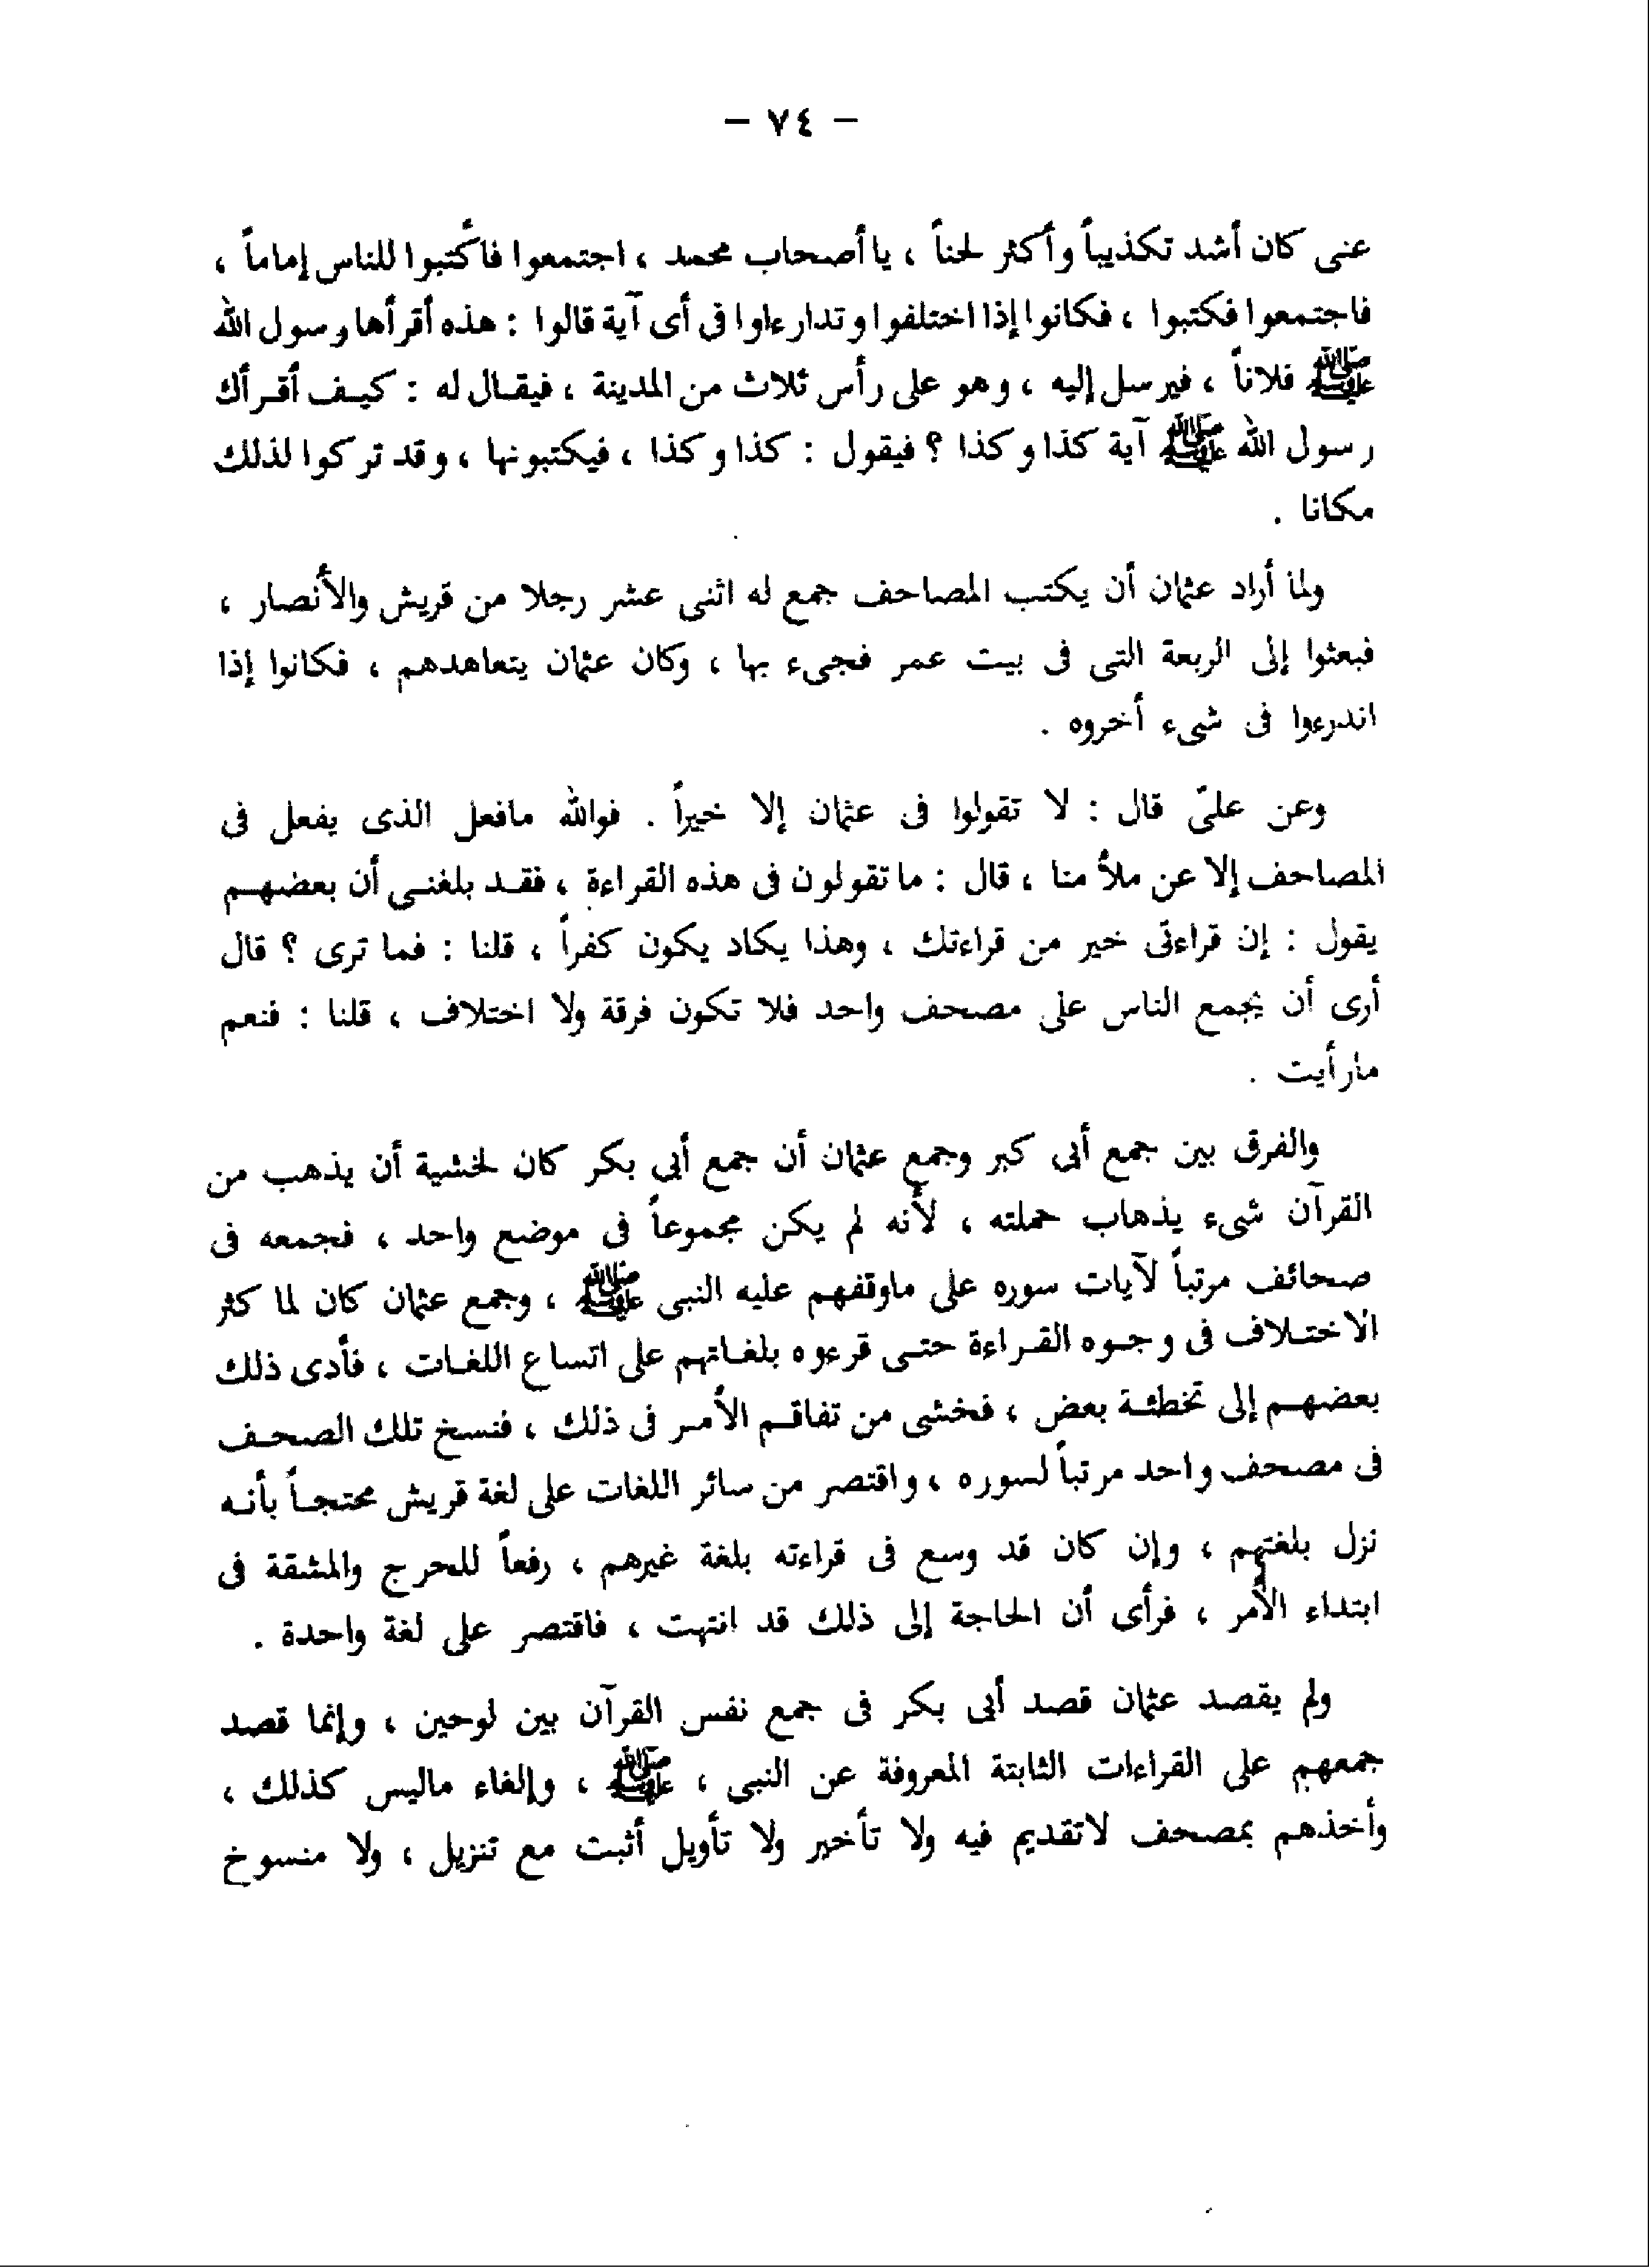 – ٧٤ –
عنى كان أشد تكذيباً وأكثر لحناً ، يا أصحاب محمد ، اجتمعوا فاكتبوا للناس إماماً ،
فاجتمعوا فكتبوا ، فكانوا إذا اختلفوا وتدارءاوا فى أى آية قالوا : هذه أقرأها رسول الله
ﷺ فلاناً ، فيرسل إليه ، وهو على رأس ثلاث من المدينة ، فيقال له : كيف أقرأك
رسول الله ﷺ آية كذا وكذا ؟ فيقول : كذا وكذا ، فيكتبونها ، وقد تركوا لذلك
مكانا .
ولما أراد عثمان أن يكتب المصاحف جمع له اثنى عشر رجلا من قريش والأنصار ،
فبعثوا إلى الربعة التى فى بيت عمر فجىء بها ، وكان عثمان يتعاهدهم ، فكانوا إذا
اندرءوا فى شىء أخروه .
وعن علىّ قال : لا تقولوا فى عثمان إلا خيراً . فوالله مافعل الذى يفعل فى
المصاحف إلا عن ملأ منا ، قال : ما تقولون فى هذه القراءة ، فقد بلغنى أن بعضهم
يقول : إن قراءتى خير من قراءتك ، وهذا يكاد يكون كفراً ، قلنا : فما ترى ؟ قال
أرى أن يجمع الناس على مصحف واحد فلا تكون فرقة ولا اختلاف ، قلنا : فنعم
مارأيت .
والفرق بين جمع أبى كبر وجمع عثمان أن جمع أبى بكر كان لخشية أن يذهب من
القرآن شىء يذهاب حملته ، لأنه لم يكن مجموعاً فى موضع واحد ، فجمعه فى
صحائف مرتباً لآيات سوره على ماوقفهم عليه النبى ﷺ ، وجمع عثمان كان لما كثر
الاختلاف فى وجوه القراءة حتى قرءوه بلغاتهم على اتساع اللغات ، فأدى ذلك
بعضهم إلى تخطئة بعض ، فخشى من تفاقم الأمر فى ذلك ، فنسخ تلك الصحف
فى مصحف واحد مرتباً لسوره ، واقتصر من سائر اللغات على لغة قريش محتجاً بأنه
نزل بلغتهم ، وإن كان قد وسع فى قراءته بلغة غيرهم ، رفعاً للحرج والمشقة فى
ابتداء الأمر ، فرأى أن الحاجة إلى ذلك قد انتهت ، فاقتصر على لغة واحدة .
ولم يقصد عثمان قصد أبى بكر فى جمع نفس القرآن بين لوحين ، وإنما قصد
جمعهم على القراءات الثابتة المعروفة عن النبى ، ﷺ ، وإلغاء ماليس كذلك ،
وأخذهم بمصحف لاتقديم فيه ولا تأخير ولا تأويل أثبت مع تنزيل ، ولا منسوخ